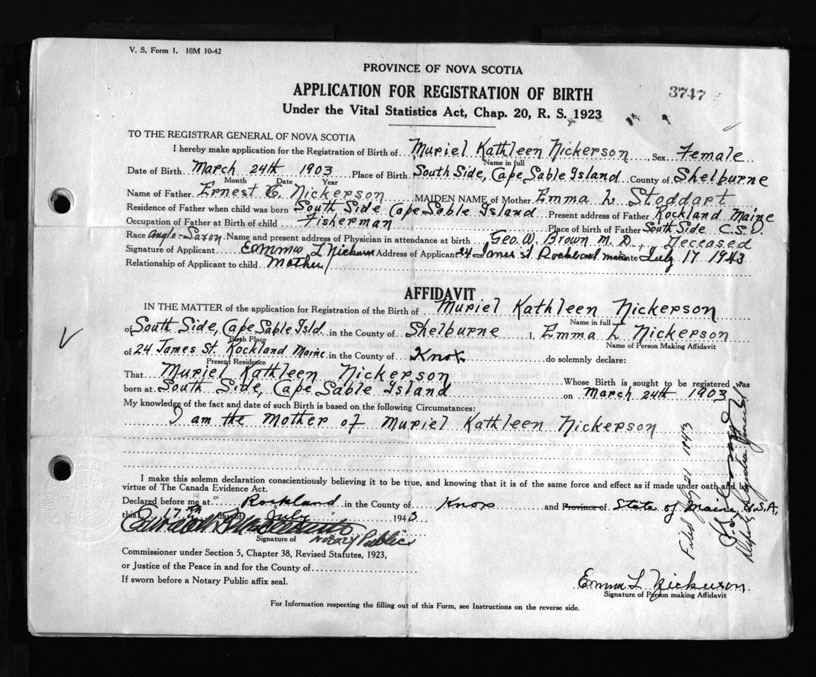 V. S. Form 1. 10M 10-42
PROVINCE OF NOVA SCOTIA
APPLICATION FOR REGISTRATION OF BIRTH
3747
Under the Vital Statistics Act, Chap. 20, R. S. 1923
TO THE REGISTRAR GENERAL OF NOVA SCOTIA
I hereby make application for the Registration of Birth of Muriel Kathleen Nickerson Sex Female
Name in full
Date of Birth March 24th 1903 Place of Birth South Side, Cape Sable Island County of Shelburne
Month Date Year
Name of Father Ernest C. Nickerson MAIDEN NAME of Mother Emma L Stoddart
Residence of Father when child was born South Side Cape Sable Island Present address of Father Rockland Maine
Occupation of Father at Birth of child Fisherman Place of birth of Father South Side C.S.I.
Race Anglo-Saxon Name and present address of Physician in attendance at birth Geo. W. Brown M.D., Deceased
Signature of Applicant Emma L Nickerson Address of Applicant 24 James St Rockland Maine Date July 17 1943
Relationship of Applicant to child Mother
AFFIDAVIT
IN THE MATTER of the application for Registration of the Birth of Muriel Kathleen Nickerson
Name in full
of South Side, Cape Sable Isld in the County of Shelburne I, Emma L. Nickerson
Birth Place Name of Person Making Affidavit
of 24 James St. Rockland Maine in the County of Knox do solemnly declare:
Present Residence
That Muriel Kathleen Nickerson Whose Birth is sought to be registered was
born at South Side, Cape Sable Island on March 24th 1903
My knowledge of the fact and date of such Birth is based on the following Circumstances:
I am the Mother of Muriel Kathleen Nickerson
I make this solemn declaration conscientiously believing it to be true, and knowing that it is of the same force and effect as if made under oath and by
virtue of The Canada Evidence Act.
Declared before me at Rockland in the County of Knox and Province of State of Maine, U.S.A,
this 17th July 1943
Signature of Notary Public
Commissioner under Section 5, Chapter 38, Revised Statutes, 1923,
or Justice of the Peace in and for the County of
If sworn before a Notary Public affix seal.
Emma L Nickerson
Signature of Person making Affidavit
For Information respecting the filling out of this Form, see Instructions on the reverse side.
Filed 1943
Deputy Registrar General